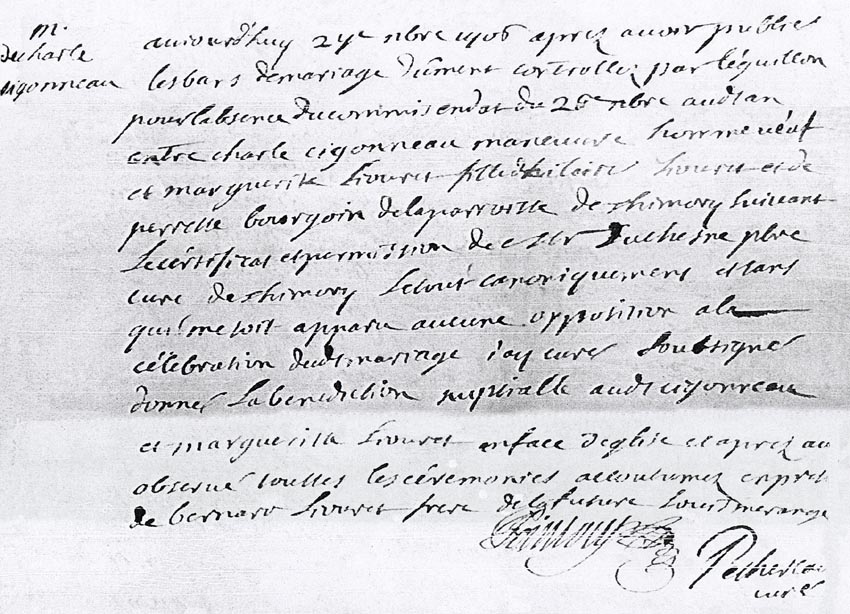 m.
du charle
cigonneau
aujourd'huy 29e nbre 1706 aprez avoir publiés
les bans de mariage dûment controllez par l'éguillon
pour l'absence du commis en dat du 28e nbre audt an
entre charle cigonneau maneuvre homme véuf
et marguerite Liouret fille d'hilaire Liouret et de
perrette bourgoin de la parroisse de thimory suivant
Le cértificat et permission de Mr Duchesne pbre
curé de thimory Le tout canoniquement et sans
qu'il me soit apparu aucune opposition a la
célébration dudt mariage i'ay curé soubsigné
donné La benediction nuptialle audt cigonneau
et marguerite Liouret en face d'eglise et aprez av
observé touttes les cérémonies accoutumez en pret
de bernard Liouret frere de la future
curé